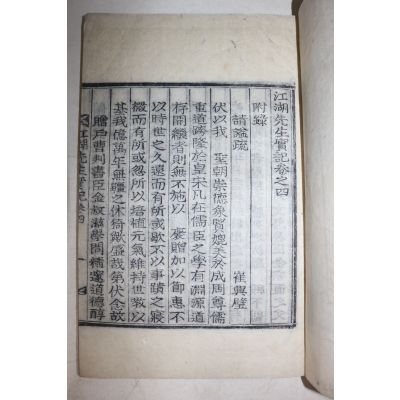 江湖先生實記卷之四
附錄
請諡疏 崔興璧
伏以我 聖朝崇德象賢媲美於成周尊儒
重道跨隆於皇宋凡在儒臣之學有淵源道
存開繼者則無不施以 褒贈加以節惠不
以時世之久遠而有所或歇不以事蹟之寢
微而有所或忽所以培植元氣維持世敎以
基我億萬年無疆之休猗歟盛哉第伏念故
贈戶曹判書臣金叔滋學問精邃道德醇
江湖先生實記 卷四 一